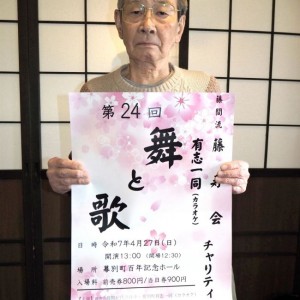 藤間流 藤 会 チャリティ
有志一同(カラオケ)
第24回
舞と歌
日 時 令和7年4月27日(日)
開演13:00(開場12:30)
場 所 幕別町百年記念ホール
入場料 前売券800円/当日券900円